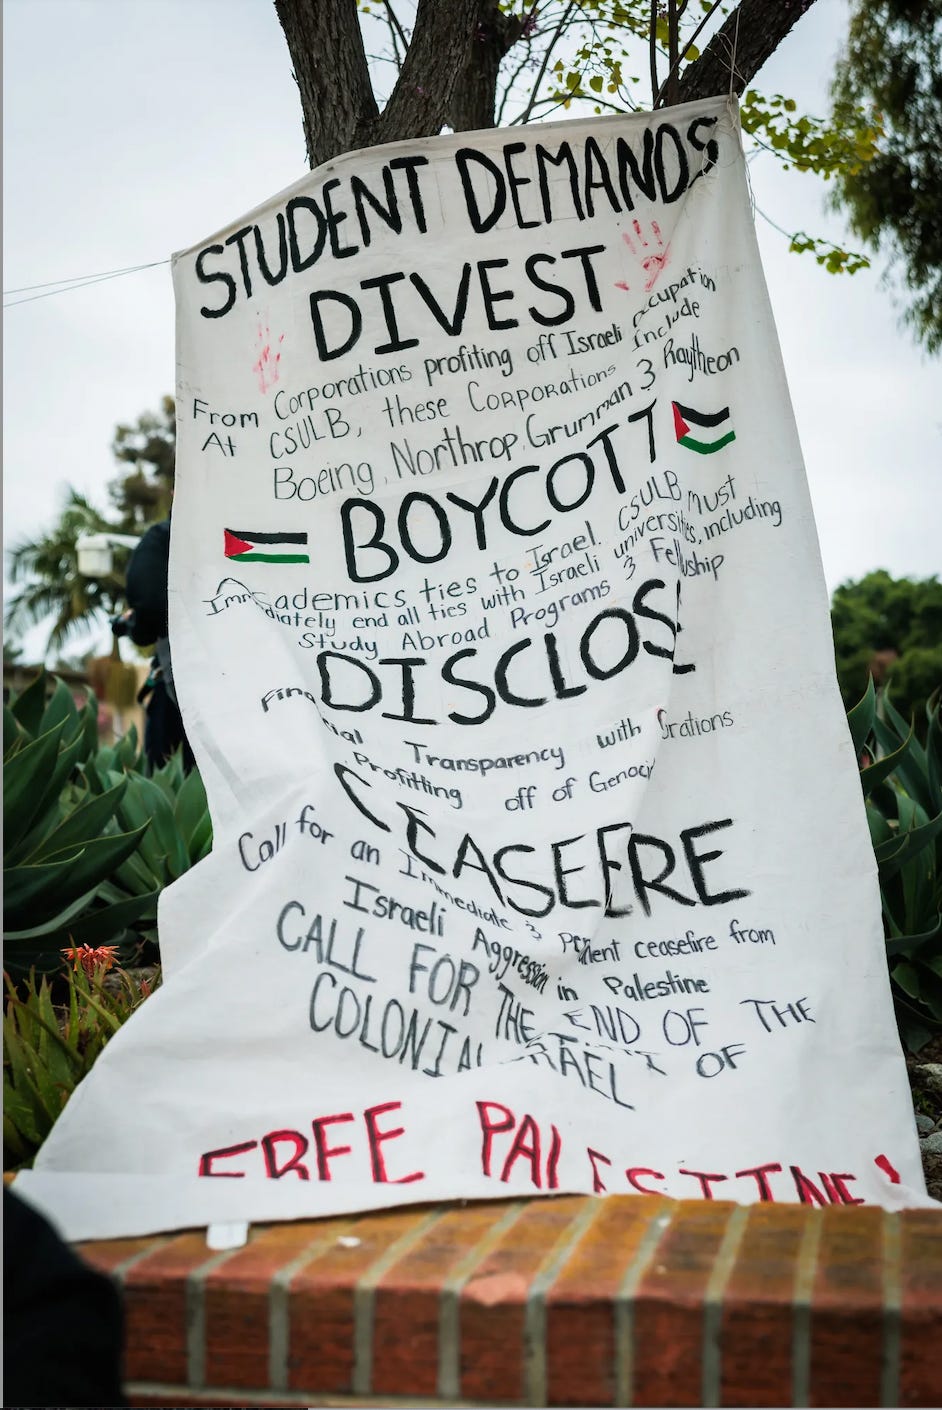 STUDENT DEMANDS
DIVEST
From Corporations profiting off Israeli occupation
At CSULB, these Corporations include
Boeing, Northrop Grumman & Raytheon
BOYCOTT
academics ties to Israel. CSULB must
Immediately end all ties with Israeli universities, including
Study Abroad Programs & Fellowship
DISCLOS
Transparency with
Profitting off of
CEASEFIRE
Call for an Immediate & ceasefire from
Israeli Aggression in Palestine
CALL FOR THE END OF THE
COLONIAL OF
FREE PALESTINE!